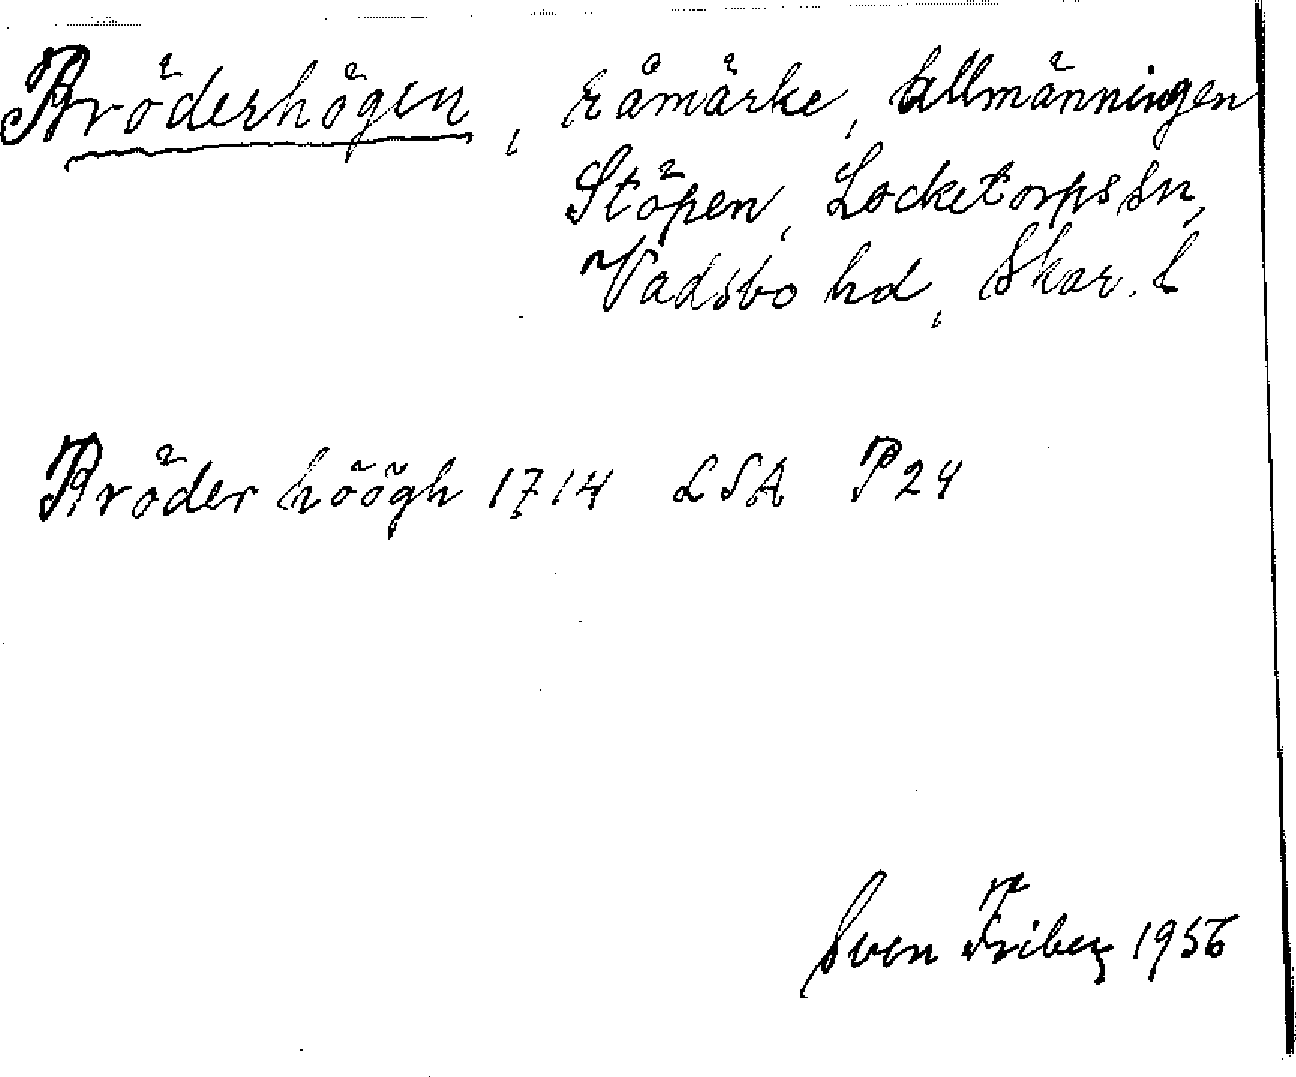 Bröderhögen, råmärke, allmänningen
Stöpen, Locketorps sn,
Vadsbo hd, Skar. l
Bröder höögh 1714 LSA P24
Sven Friberg 1956